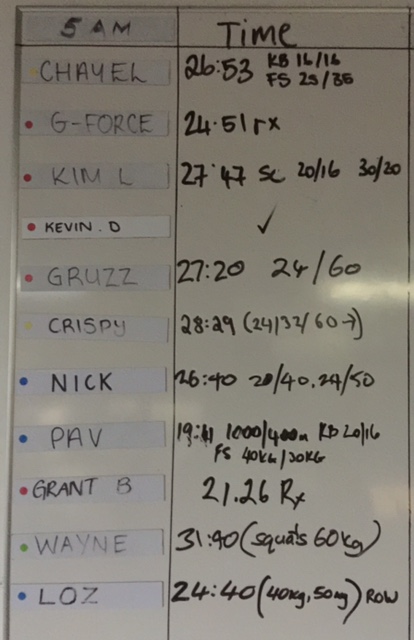 5 AM Time
CHAYEL 26:53 KB 16/16
FS 25/35
G-FORCE 24.51 rx
KIM L 27:47 SC 20/16 30/20
KEVIN. D ✓
GRUZZ 27:20 24/60
CRISPY 28:29 (24/32/60→)
NICK 26:40 20/40.24/50
PAV 1000/400m KB 20/16
FS 40KG/30KG
GRANT B 21.26 Rx
WAYNE 31:40 (squats 60kg)
LOZ 24:40 (40kg, 50kg) ROW